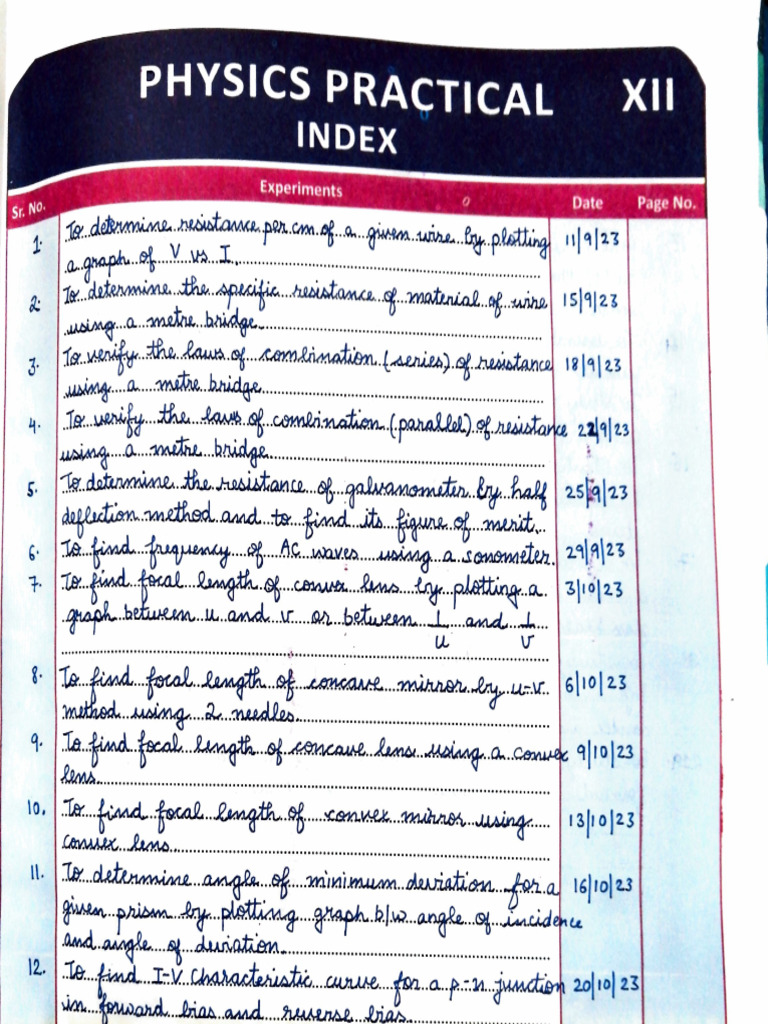 PHYSICS PRACTICAL XII
INDEX
Sr. No. Experiments Date Page No.
1. To determine resistance per cm of a given wire by plotting 11/9/23
a graph of V vs I.
2. To determine the specific resistance of material of wire 15/9/23
using a metre bridge.
3. To verify the laws of combination (series) of resistance 18/9/23
using a metre bridge.
4. To verify the laws of combination (parallel) of resistance 22/9/23
using a metre bridge.
5. To determine the resistance of galvanometer by half 25/9/23
deflection method and to find its figure of merit.
6. To find frequency of AC waves using a sonometer. 29/9/23
7. To find focal length of convex lens by plotting a 3/10/23
graph between u and v or between 1/u and 1/v
8. To find focal length of concave mirror by u-v 6/10/23
method using 2 needles.
9. To find focal length of concave lens using a convex 9/10/23
lens.
10. To find focal length of convex mirror using 13/10/23
convex lens.
11. To determine angle of minimum deviation for a 16/10/23
given prism by plotting graph b/w angle of incidence
and angle of deviation.
12. To find I-V characteristic curve for a p-n junction 20/10/23
in forward bias and reverse bias.